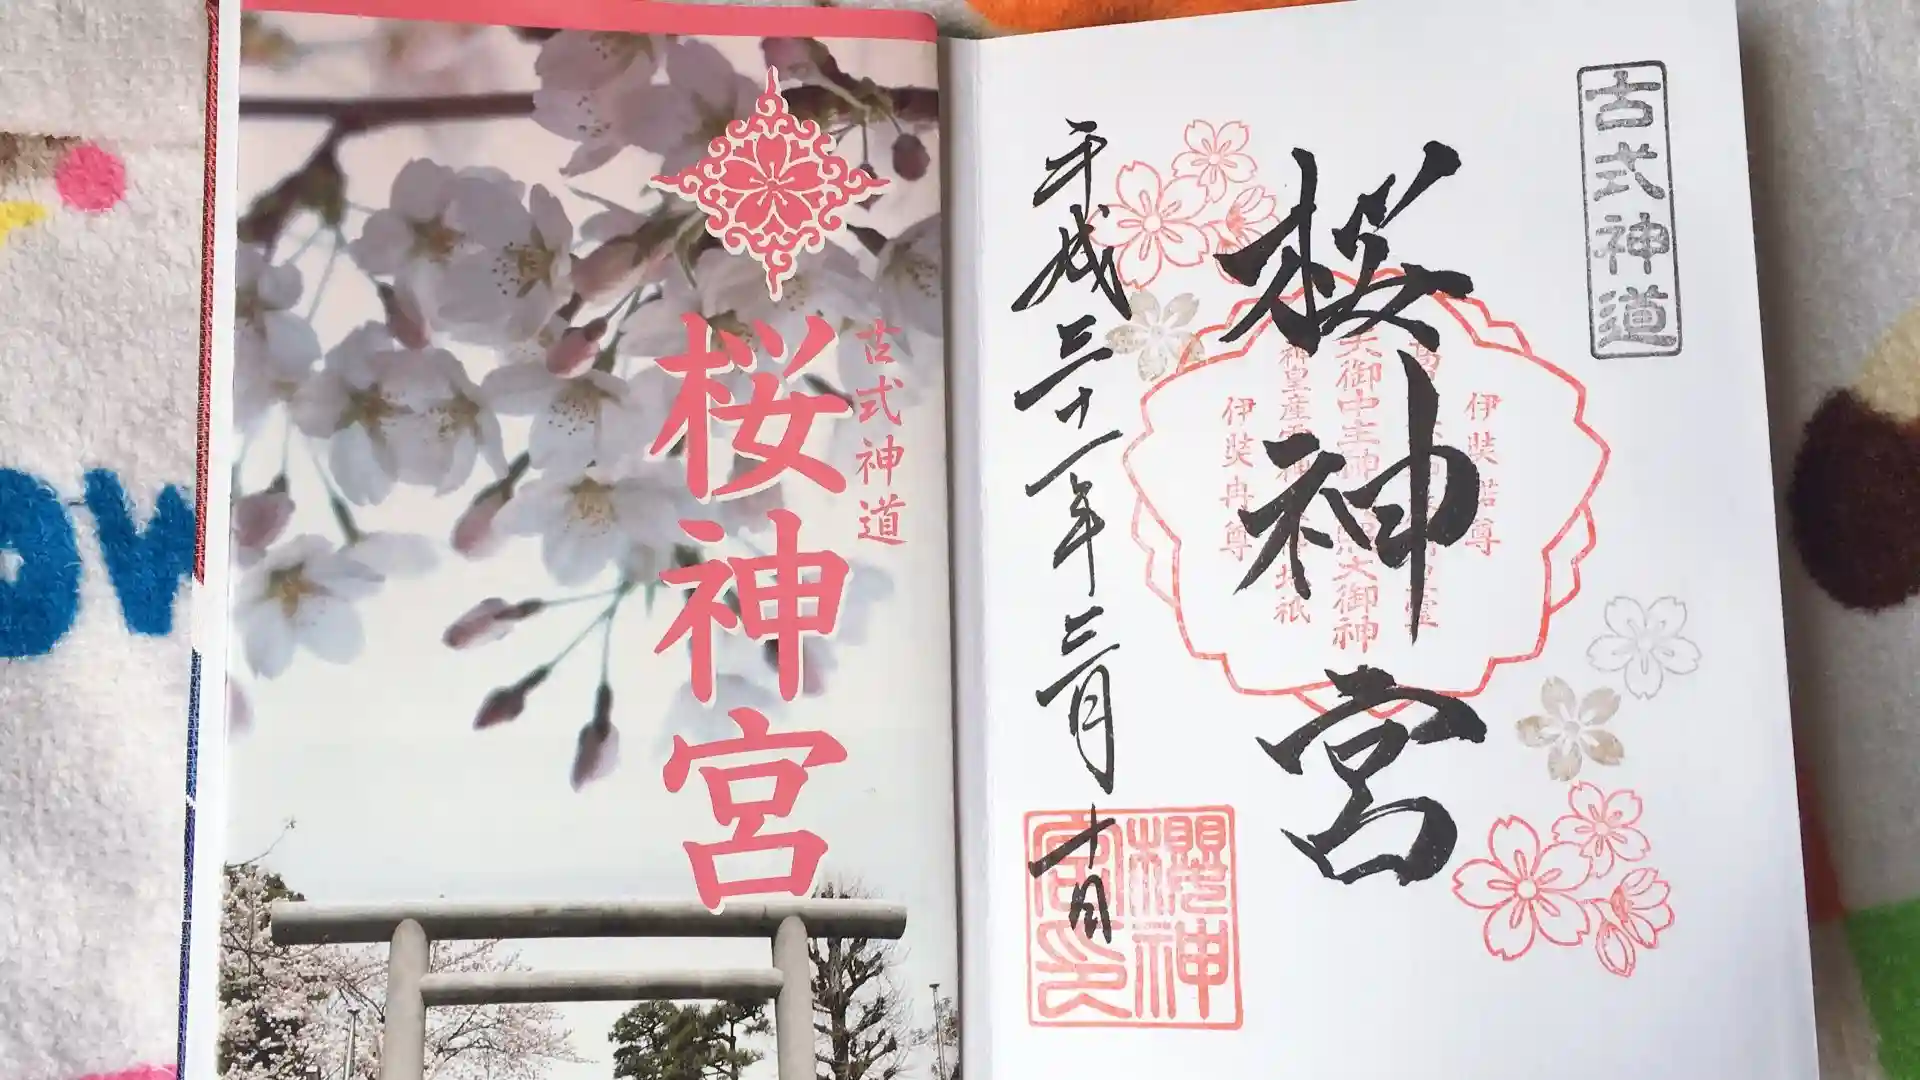 古式神道
桜神宮
古式神道
桜神宮
伊奘諾尊
天御中主神
大御神
神皇産霊神
伊奘冉尊
平成三十一年三月十日
櫻神
宮印
OW